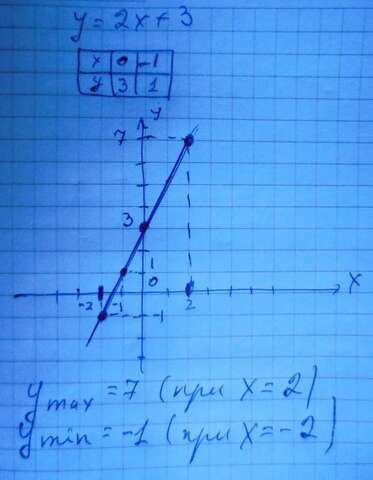 y = 2x + 3
x 0 -1
y 3 1
y
7
3
1
0
x
-2 -1 2
-1
y max = 7 (при x = 2)
y min = -1 (при x = -2)